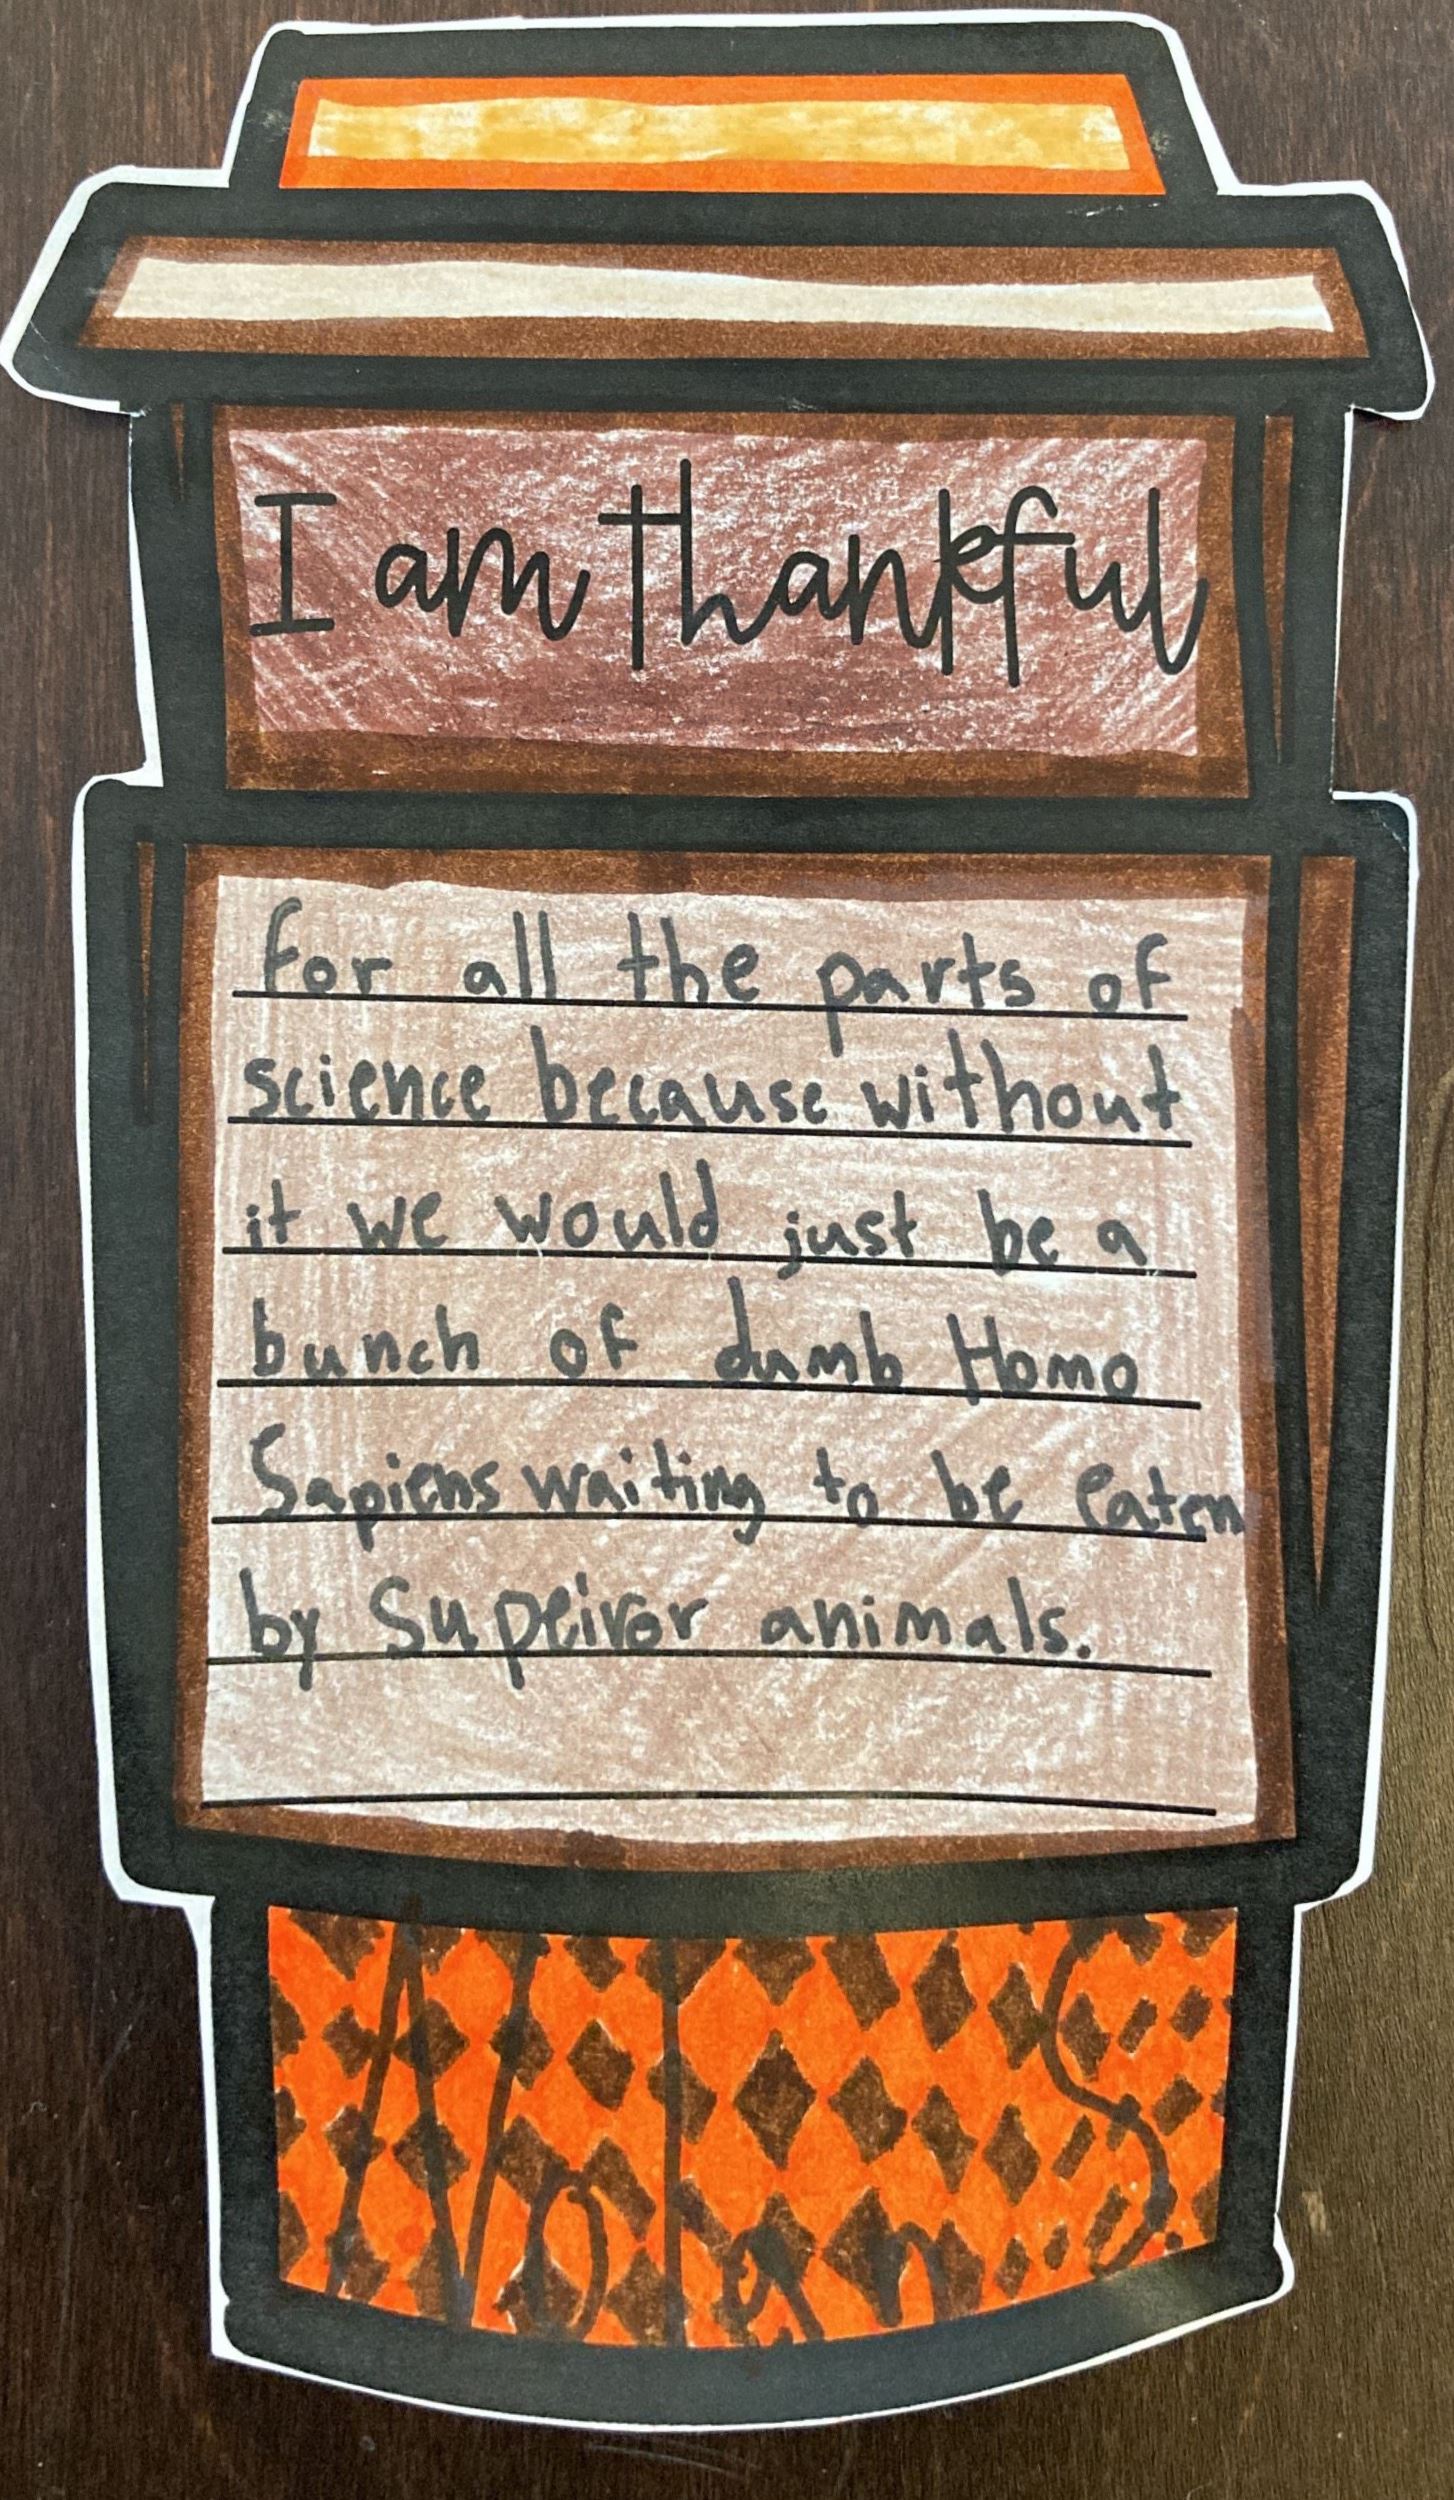 I am thankful
for all the parts of
science because without
it we would just be a
bunch of dumb Homo
Sapiens waiting to be eaten
by Supeiror animals.
Nolan S